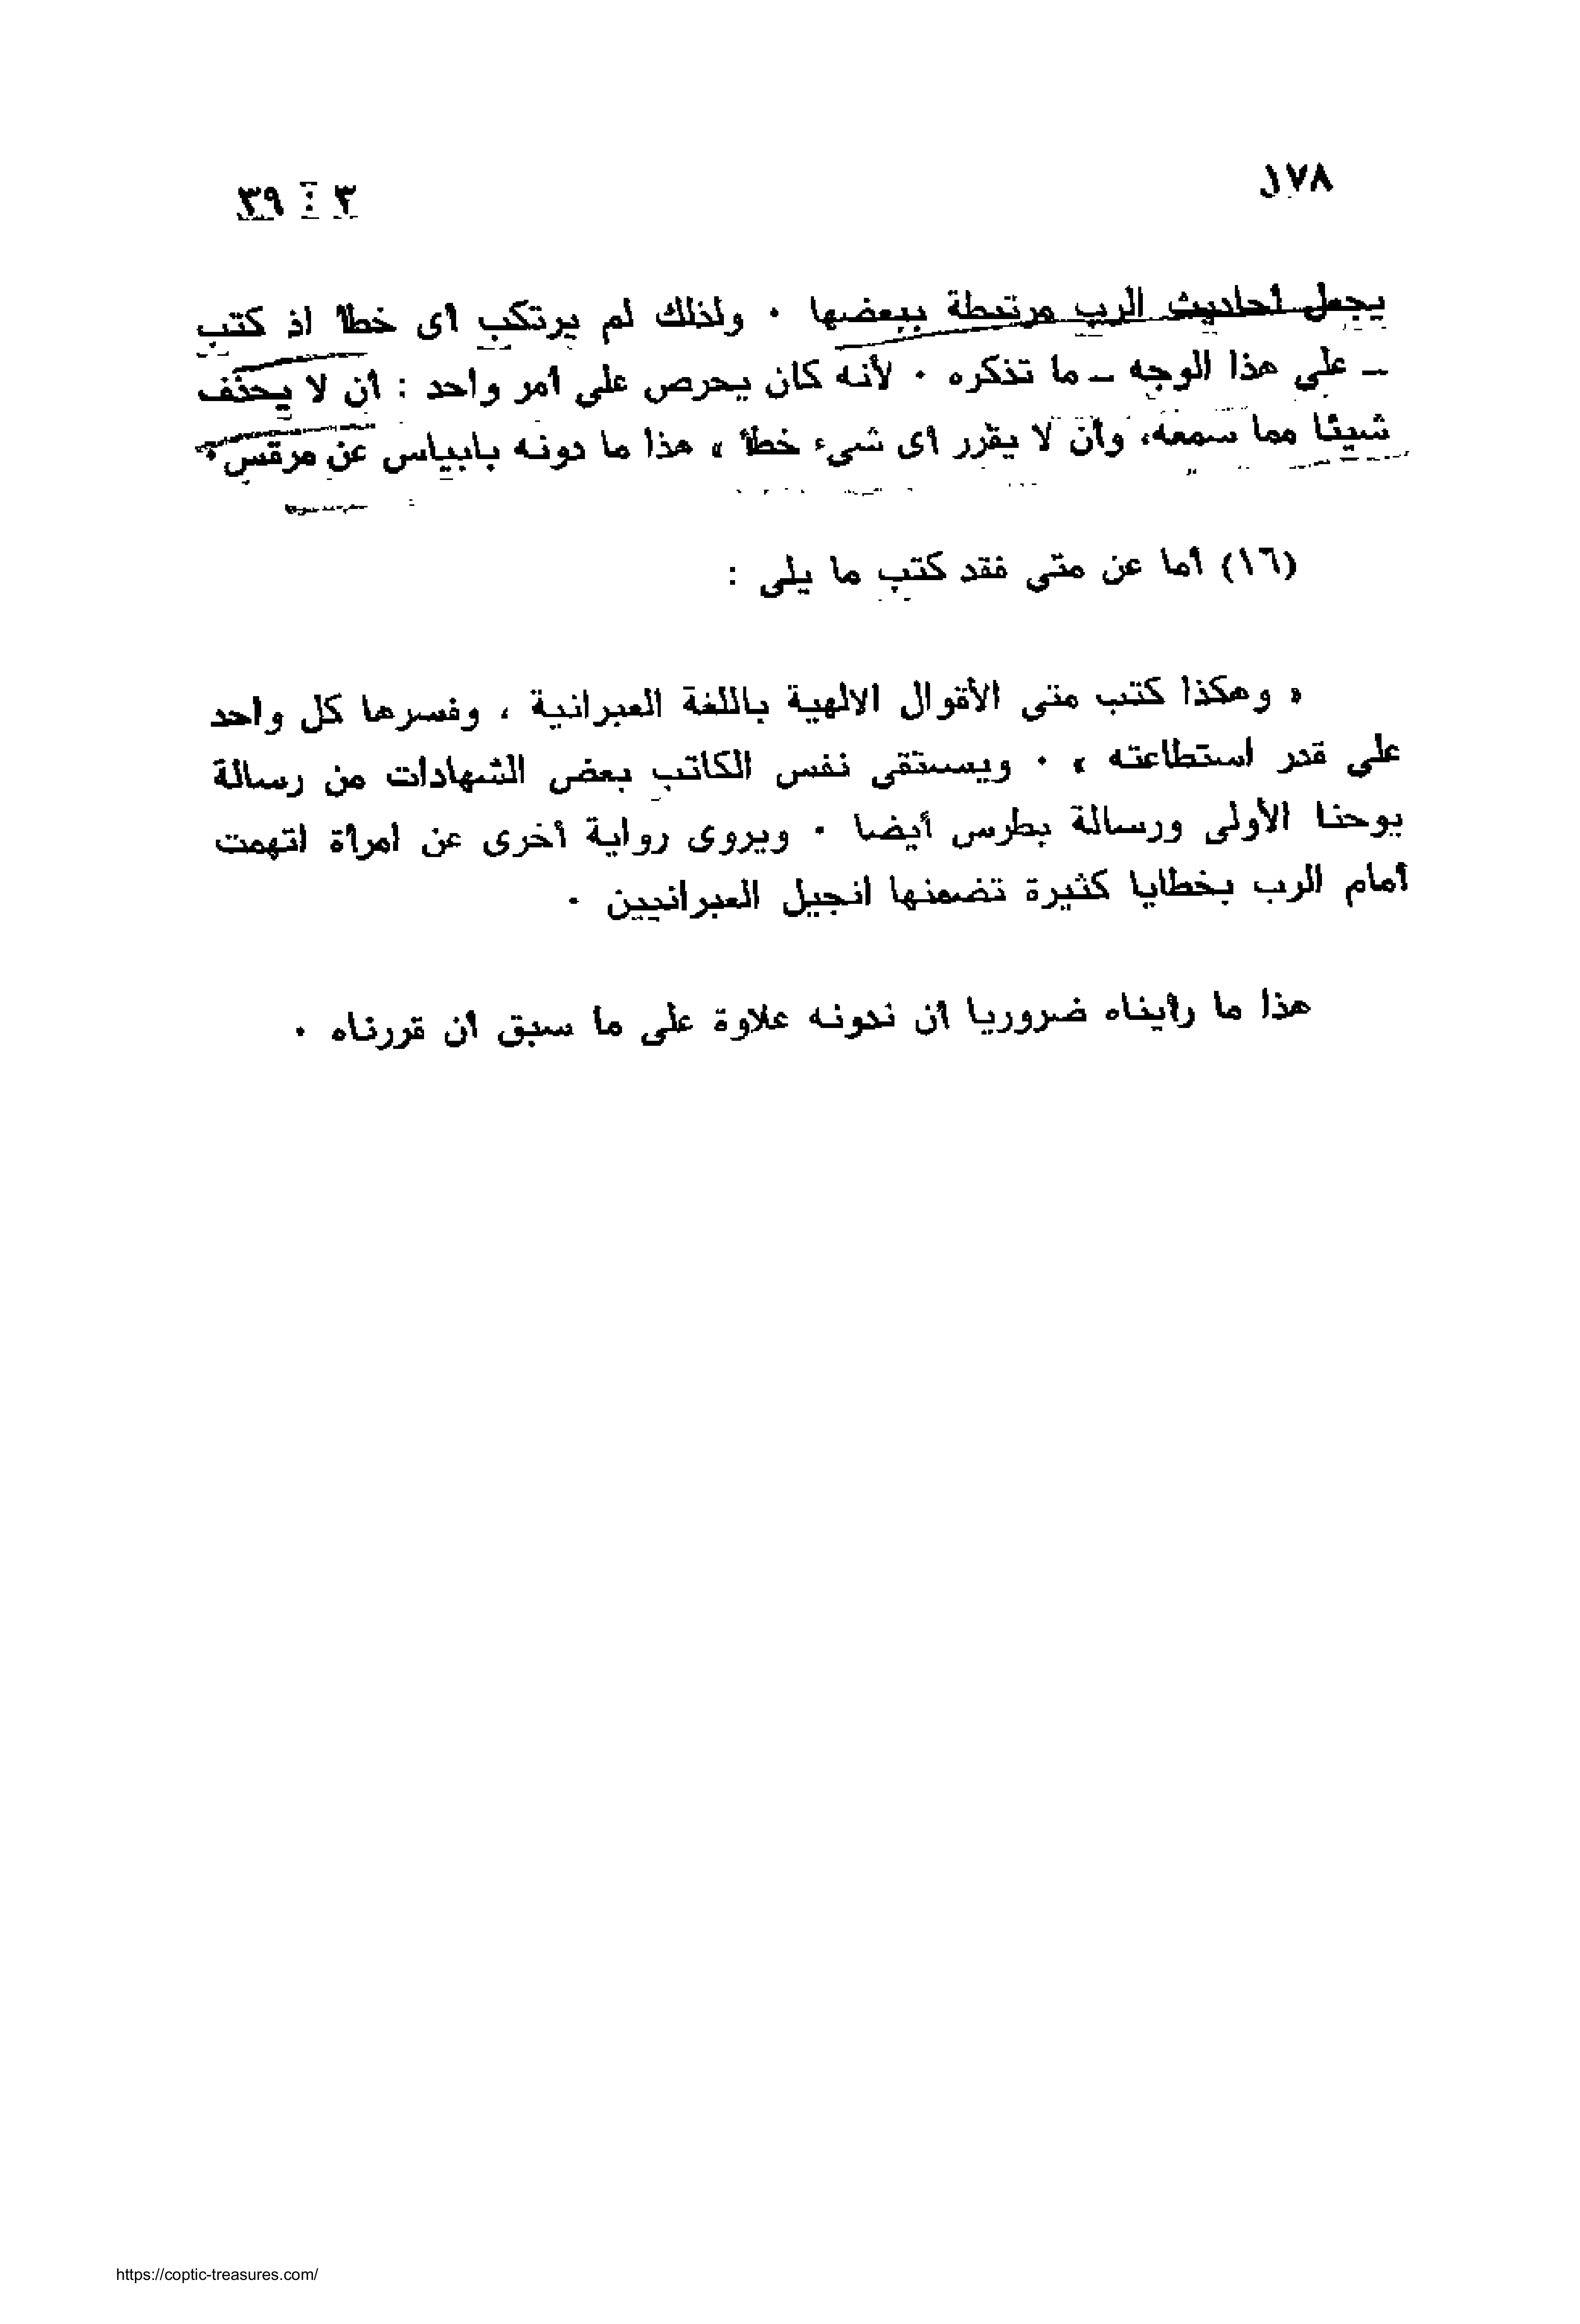 ١٧٨
٣ : ٣٩
يجعل أحاديث الرب مرتبطة ببعضها ٠ ولذلك لم يرتكب أى خطأ اذ كتب
ـ على هذا الوجه ـ ما تذكره ٠ لأنه كان يحرص على أمر واحد : أن لا يحذف
شيئا مما سمعه، وأن لا يقرر أى شىء خطأ » هذا ما دونه بابياس عن مرقس٠
(١٦) أما عن متى فقد كتب ما يلى :
« وهكذا كتب متى الأقوال الالهية باللغة العبرانية ، وفسرها كل واحد
على قدر استطاعته » ٠ ويستقى نفس الكاتب بعض الشهادات من رسالة
يوحنا الأولى ورسالة بطرس أيضا ٠ ويروى رواية أخرى عن امرأة اتهمت
أمام الرب بخطايا كثيرة تضمنها انجيل العبرانيين ٠
هذا ما رأيناه ضروريا أن ندونه علاوة على ما سبق أن قررناه ٠
https://coptic-treasures.com/